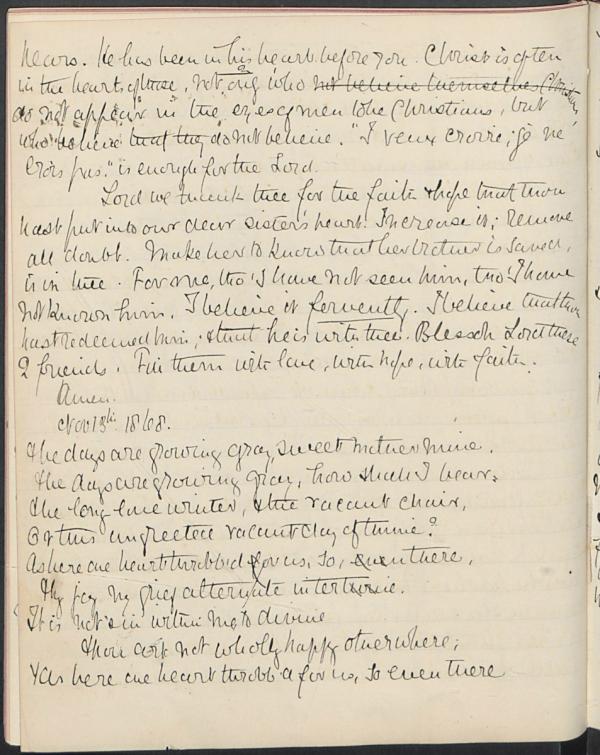 hears. He has been in his heart before you. Christ is often
in the hearts of those, not only who not believe themselves Christians
do not appear in the eyes of men to be Christians, but
who believe that they do not believe. "I veux croire; je ne
crois pas." is enough for the Lord.
Lord we thank thee for the faith & hope that thou
hast put into our dear sister's heart. Increase it; remove
all doubt. Make her to know that her brother is saved,
is in thee. For me, tho' I have not seen him, tho' I have
not known him, I believe it fervently. I believe that thou
hast redeemed him; & that he is with thee. Bless oh Lord these
2 friends. Fill them with love, with hope, with faith.
Amen.
Nov 13th 1868.
The days are growing gray, sweet mother mine.
The days are growing gray, how shall I bear,
The long lone winter, & the vacant chair,
Or this ungreeted vacant day of thine?
As here one heart throbb'd for us, so, even there,
Thy joy my grief alternate intertwine.
It is not in within me to divine
Thou art not wholly happy otherwhere;
As here one heart throbb'd for us, so even there